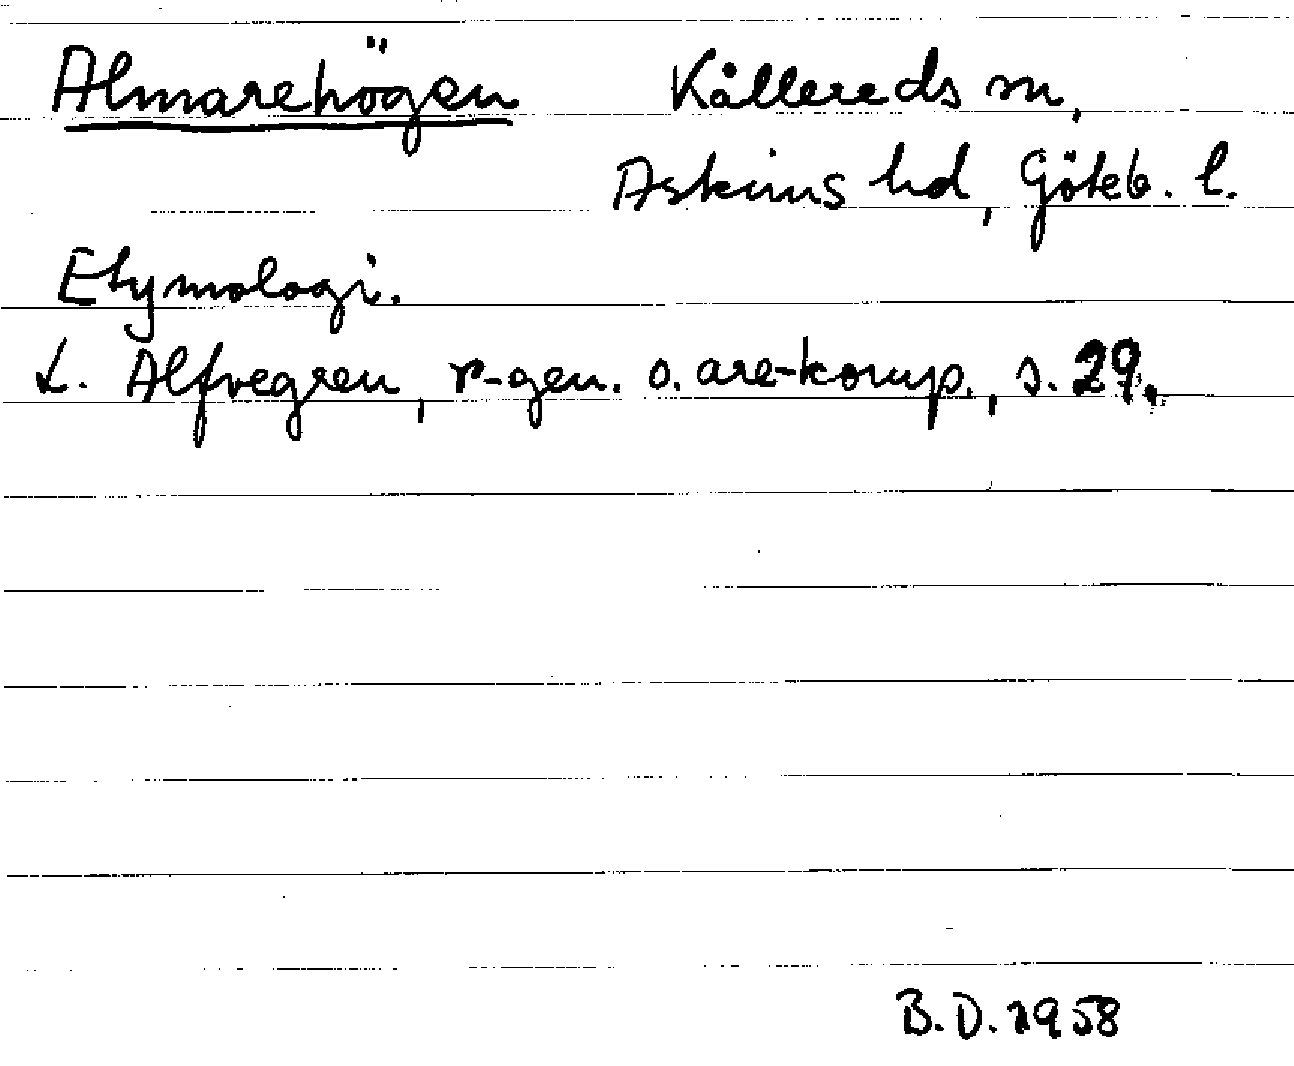 Almarehögen Kållereds sn,
Askims hd, Göteb. l.
Etymologi.
L. Alfvegren, r-gen. o. are-komp., s. 29.
B.D. 1958